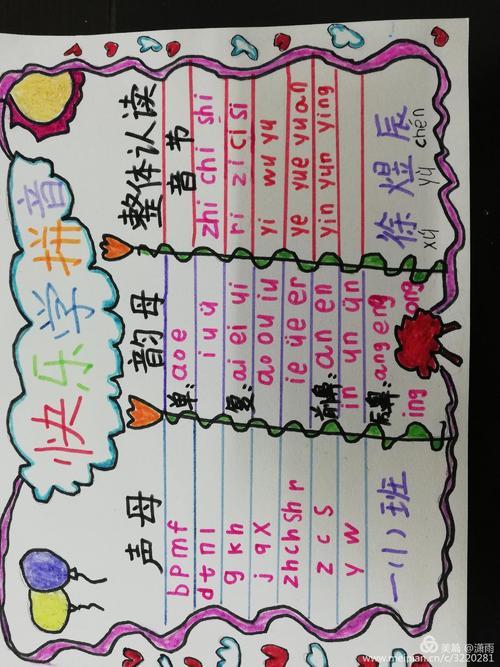 快乐学拼音
声母
b p m f
d t n l
g k h
j q x
zh ch sh r
z c s
y w
一(1)班
韵母
单: a o e
i u ü
复: ai ei ui
ao ou iu
ie üe er
前鼻: an en
in un ün
后鼻: ang eng
ing ong
整体认读
音节
zhi chi shi
ri zi ci si
yi wu yu
ye yue yuan
yin yun ying
徐煜辰
xu yu chen
美篇 @潇雨
www.meipian.cn/c/3220281